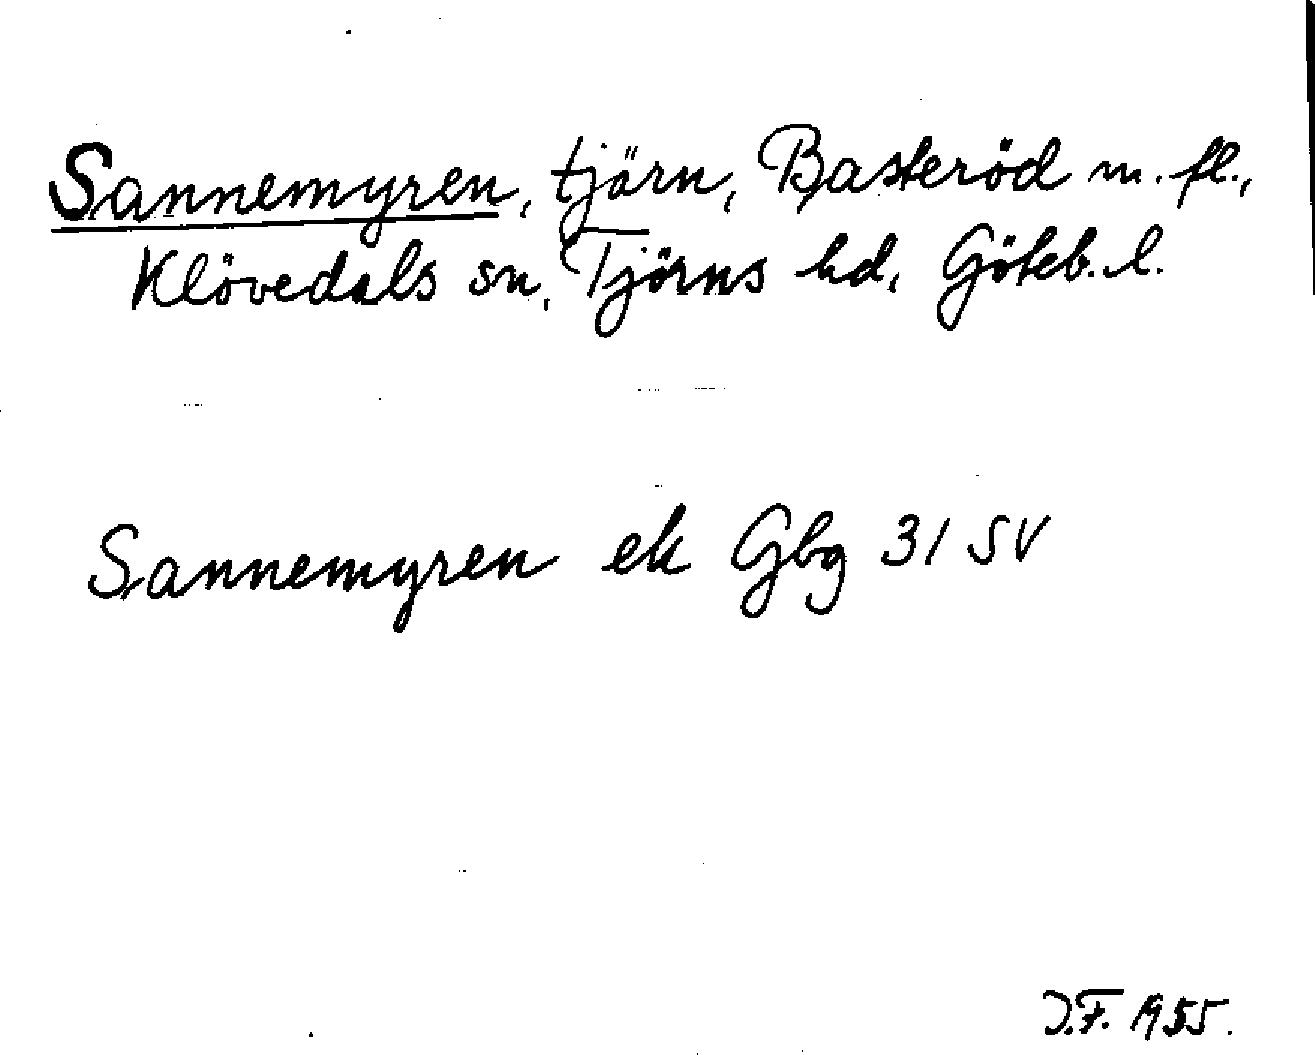 Sannemyren, tjärn, Basteröd m. fl.,
Klövedals sn, Tjörns hd, Göteb. l.
Sannemyren ek Gbg 31 SV
J.F. 1955.